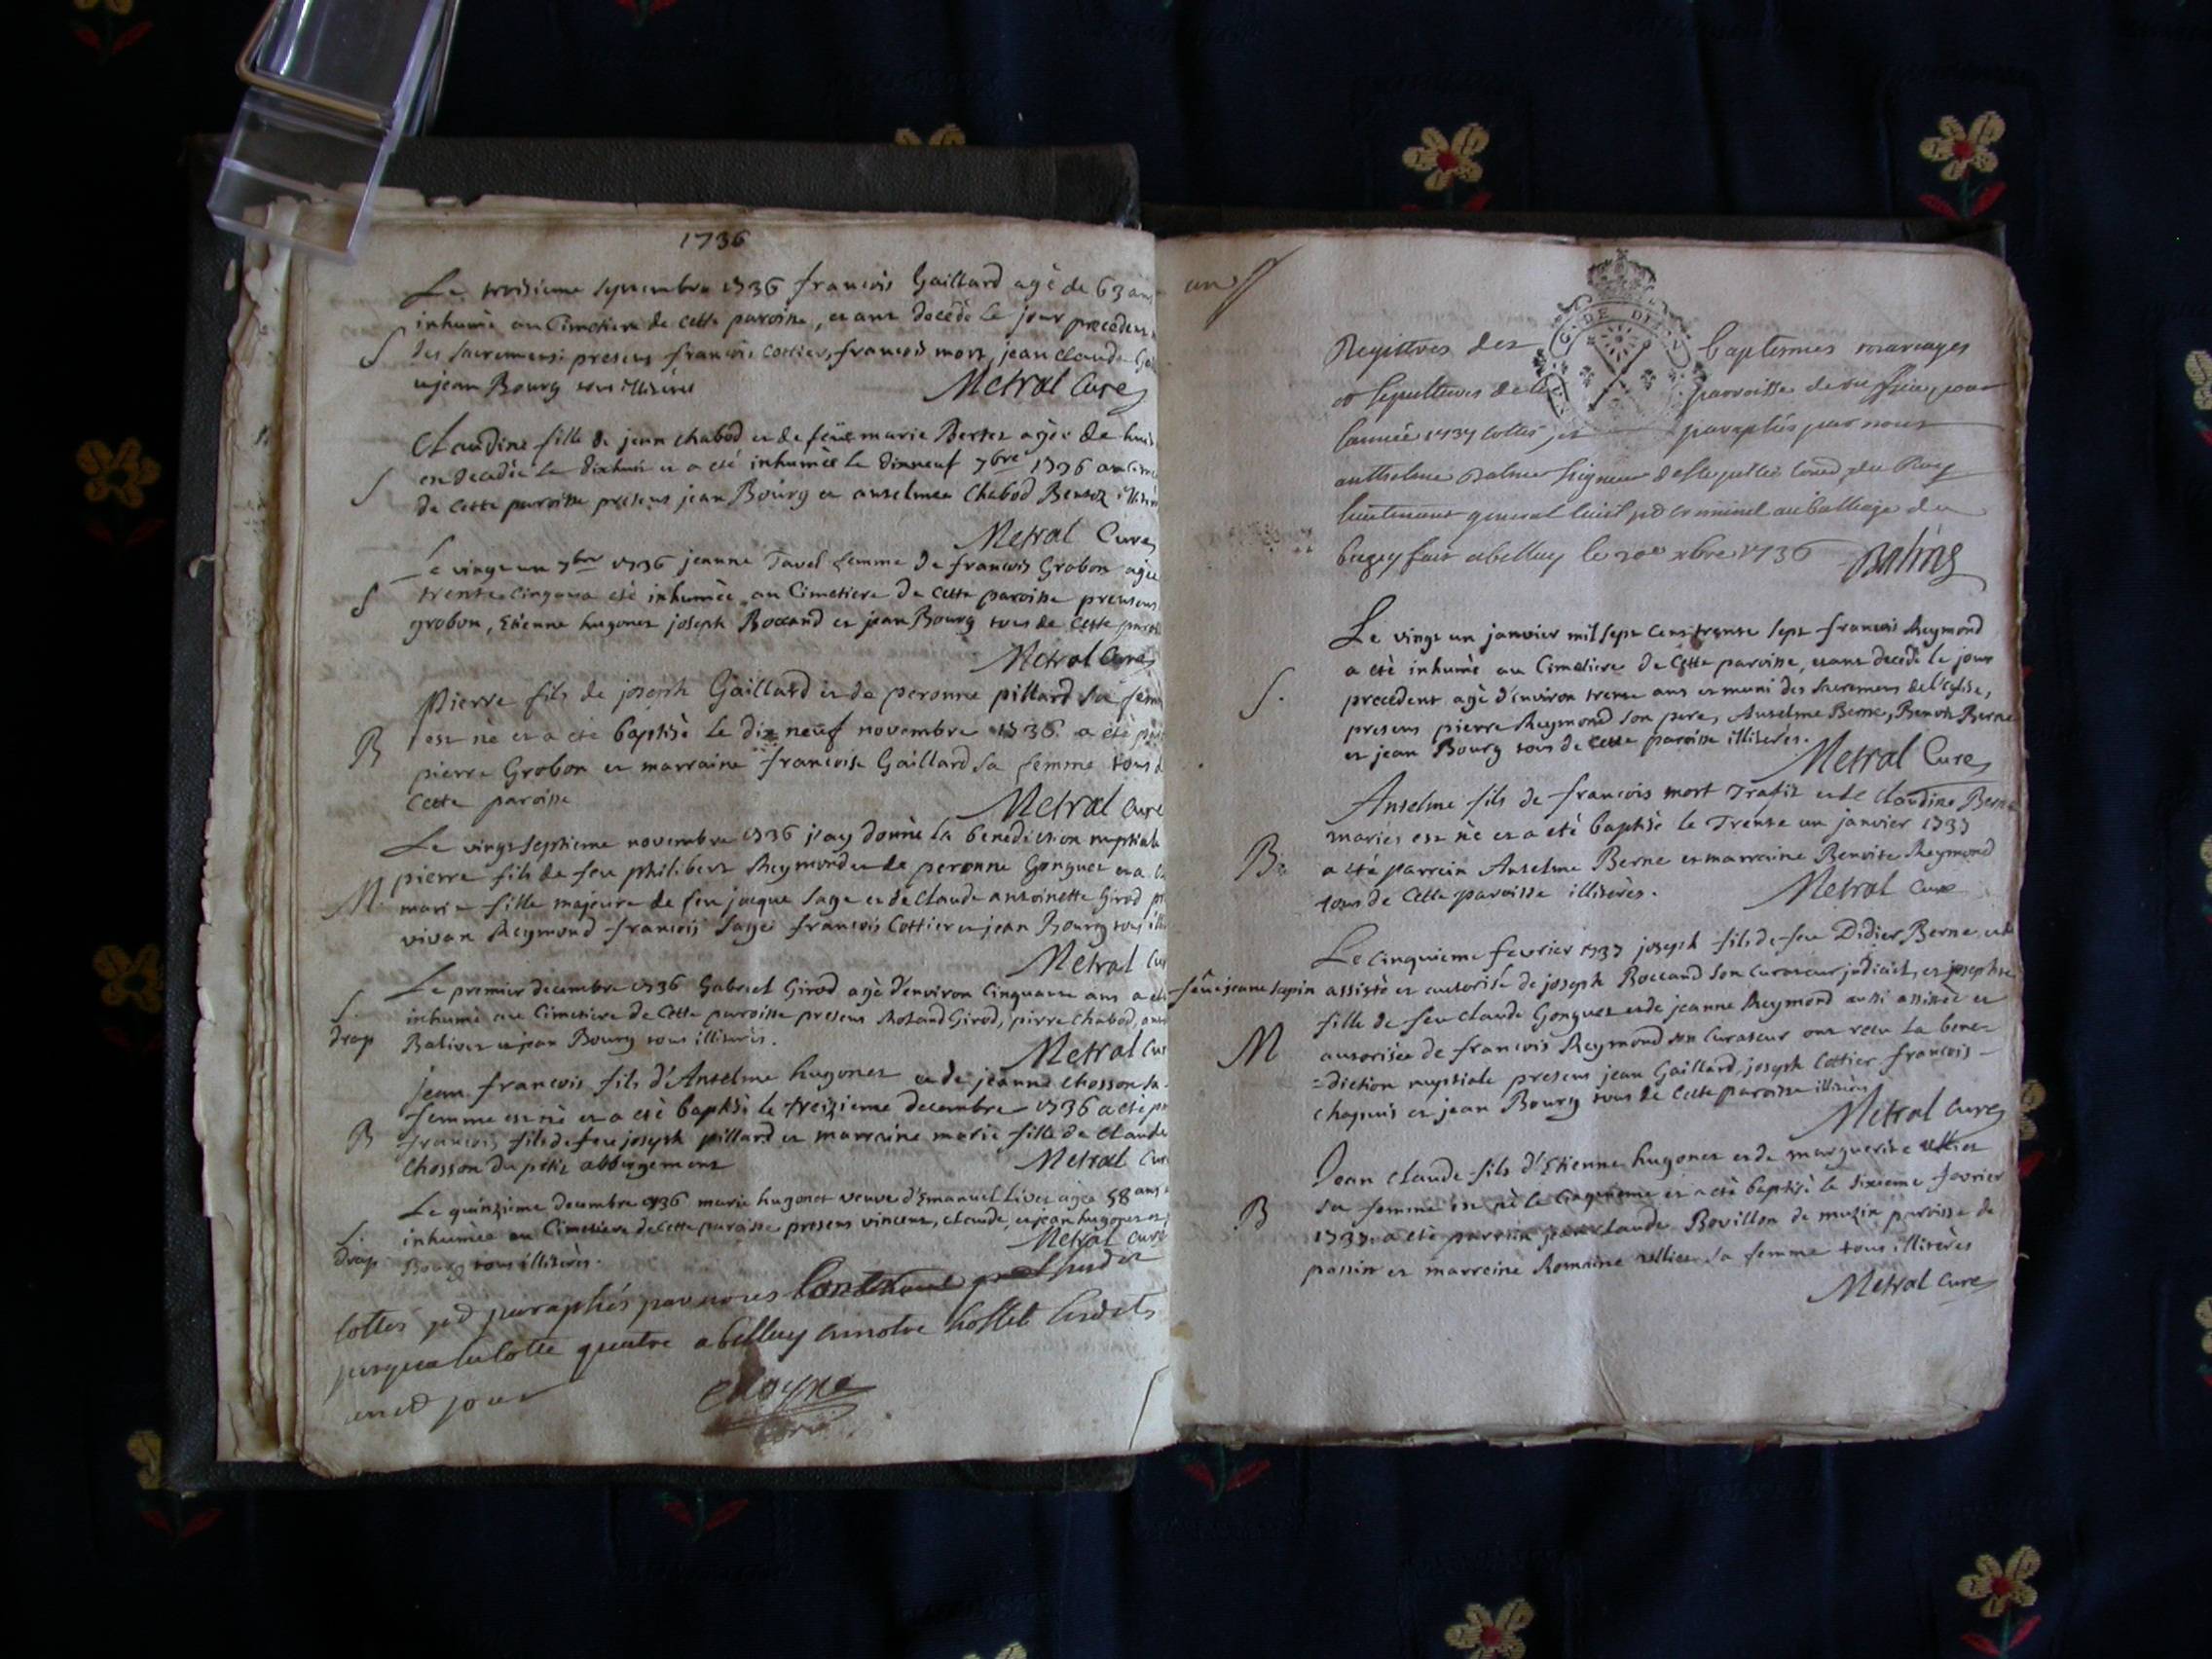 1736
Le troisieme septembre 1736 francois Gaillard agè de 63 ans
inhumè au Cimetiere de cette paroisse, etant decedè le jour precedent
S des sacremens presens francois Cottier, francois mort, jean claude
et jean Bourg tous illiteres
Metral Curè
Claudine fille de jean chabod et de feüe marie Bertet agèe de huit
est decedèe le dixhuit et a etè inhumèe le dixneuf 7bre 1736 au
S de cette paroisse presens jean Bourg et anselme Chabod
Metral Curè
Le vingt un 7bre 1736 jeanne Tavel femme de francois Grobon agèe
S trente cinq a etè inhumèe au Cimetiere de Cette paroisse presens
grobon, Etienne hugonet joseph Boccand et jean Bourg tous de cette
Metral Curè
Pierre fils de joseph Gaillard et de peronne pillard sa
B est nè et a etè baptisè le dix neuf novembre 1736 a etè
pierre Grobon et marraine francoise Gaillard sa femme tous
Cette paroisse
Metral Curè
Le vingt septieme novembre 1736 j'ay donnè la benediction nuptiale
M. pierre fils de feu philibert Reymond et de peronne Gonguet et a
marie fille majeure de feu jacque Sage et de Claude antoinette Girod
vivan Reymond francois Sage francois Cottier et jean Bourg tous
Metral
Le premier decembre 1736 Gabriel Girod agè d'environ Cinquante ans a etè
S. inhumè au Cimetiere de Cette paroisse presens Roland Girod, pierre Chabod,
drap Balivet et jean Bourg tous illiterès.
Metral
jean francois fils d'Anselme hugonet et de jeanne Chosson sa
femme est nè et a etè baptisè le treizieme decembre 1736 a etè
B francois fils de feu joseph pillard et marraine marie fille de Claude
Chosson du petit abbergement
Metral
Le quinzieme decembre 1736 marie hugonet veuve d'Emanuel Livet agèe 58 ans
S. inhumèe au Cimetiere de Cette paroisse presens vincent, claude, et jean hugonet et
drap Bourg tous illiterès.
Metral Curè
Cottés et paraphés par nous
jusqua la Cotte quatre a belley en notre hostel
jour
un
Registres des baptemes mariages
et sepultures de la parroisse de
lannée 1737 cottés et paraphés par nous
anthelme Balme Seigneur de Ste jullie Conseiller du Roy
lieutenant general Civil et criminel au balliage de
bugey fait a belley le 20e xbre 1736 Balme
Le vingt un janvier mil sept Cens trente sept francois Reymond
a etè inhumè au Cimetiere de Cette paroisse, etant decedè le jour
S. precedent agè d'environ trente ans et muni des sacremens de l'eglise,
presens pierre Reymond son pere, Anselme Berne, Benoit Berne
et jean Bourg tous de Cette paroisse illiteres.
Metral Curè
Anselme fils de francois mort Trafit et de Claudine Berne
mariés est nè et a etè baptisè le Trente un janvier 1737
B: a etè parrein Anselme Berne et marraine Benoite Reymond
tous de Cette paroisse illiterès.
Metral Curè
Le Cinquieme fevrier 1737 joseph fils de feu Didier Berne et de
feüe jeane Sapin assistè et autorisè de joseph Boccand son Curateur judiciel, et josephte
fille de feu Claude Gonguet et de jeanne Reymond aussi assistèe et
M autorisèe de francois Reymond son Curateur ont recu la bene=
=diction nuptiale presens jean Gaillard, joseph Cottier francois
Chapuis et jean Bourg tous de Cette paroisse illiterès
Metral Curè
Jean Claude fils d'Etienne hugonet et de marguerite
B sa femme est nè le Cinquieme et a etè baptisè le Sixieme fevrier
1737. a etè parrein jean Claude Bovillon de muzin paroisse de
passin et marreine Romaine sa femme tous illiterès
Metral Curè